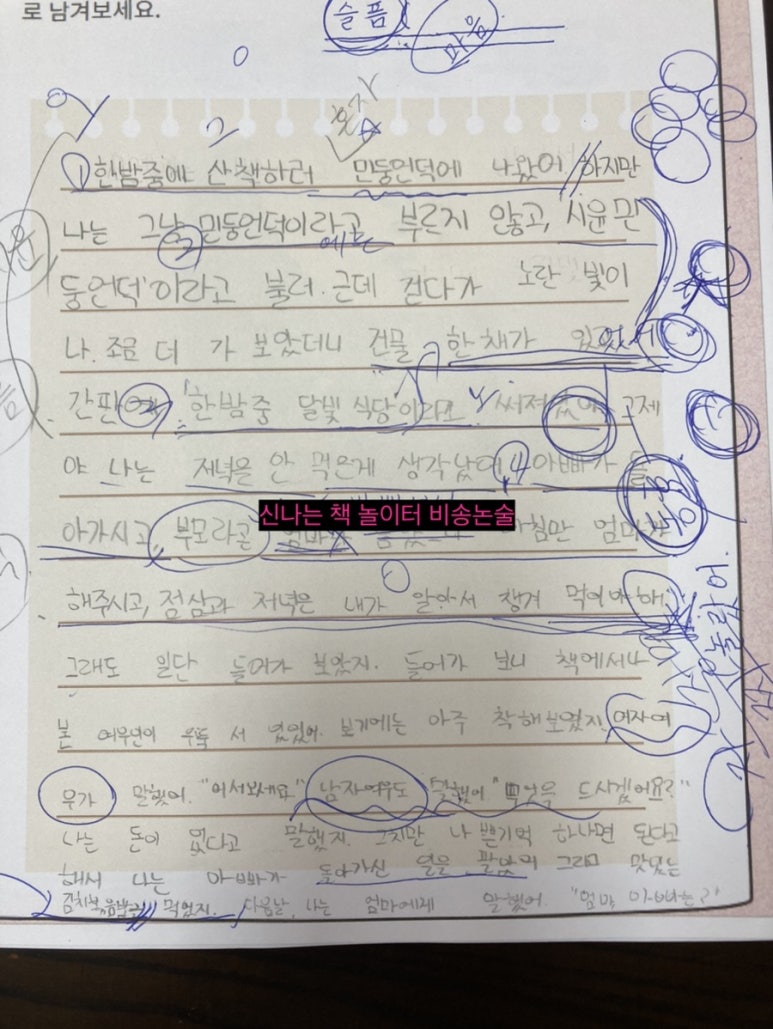 로 남겨보세요.
슬픔
마음
혼자
① 한밤중에 산책하러 민둥언덕에 나왔어 하지만
나는 그냥 민둥언덕이라고 부르지 않고, 시윤민
에는
둥언덕'이라고 불러. 근데 걷다가 노란 빛이
나. 조금 더 가 보았더니 건물 한채가 있었어
간판 '한밤중 달빛 식당'이라고 써져있어 그제
야 나는 저녁은 안 먹은게 생각났어 4 아빠가 돌
아가시고 부모라곤 엄마 아침만 엄마가
신나는 책 놀이터 비송논술
해주시고, 점심과 저녁은 내가 알아서 챙겨 먹어야해
그래도 일단 들어가 보았지. 들어가 보니 책에서나
본 여우인이 우뚝 서 있었어. 보기에는 아주 착해보였지. 여자여
우가 말했어. "어서보세요" 남자여우도 말했어 "뭐을 드시겠어요?"
나는 돈이 없다고 말했지. 그치만 나쁜기억 하나면 된다고
해서 나는 아빠가 돌아가신 일을 팔았어 그리고 맛있는
김치볶음밥을 먹었지. 다음날, 나는 엄마에게 말했어. "엄마, 아빠는?"